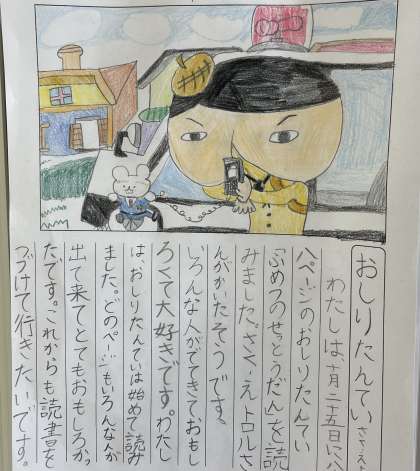 おしりたんてい さく・え
わたしは、十月二十五日に、八
八ページのおしりたんてい
「ふめつのせっとうだん」を読
みました。さく・えトロルさ
んがかいたそうです。
いろんな人がでてきておもし
ろくて大好きです。わたし
は、おしりたんていは始めて読み
ました。どのページもいろんな人が
出て来てとてもおもしろかっ
たです。これからも読書を
つづけて行きたいです。